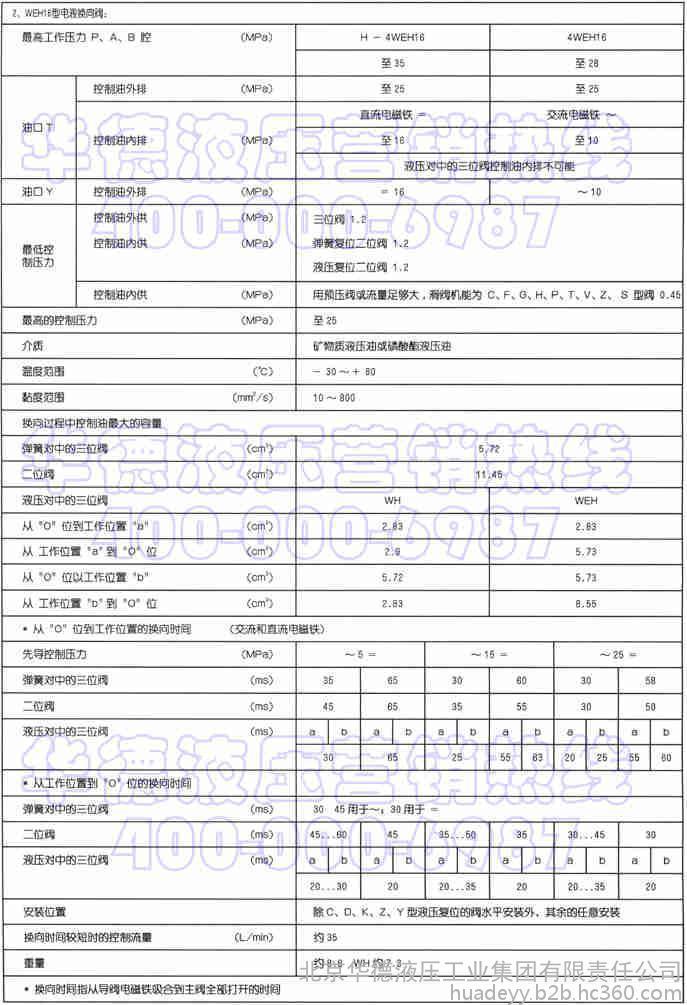 2、WEH16型电液换向阀:
最高工作压力 P、A、B 腔 (MPa) H - 4WEH16 4WEH16
至 35 至 28
油口 T 控制油外排 (MPa) 至 25 至 25
直流电磁铁 = 交流电磁铁 ～
控制油内排 (MPa) 至 16 至 10
液压对中的三位阀控制油内排不可能
油口 Y 控制油外排 (MPa) = 16 ～ 10
最低控制压力 控制油外供 (MPa) 三位阀 1.2
控制油内供 (MPa) 弹簧复位二位阀 1.2
液压复位二位阀 1.2
控制油内供 (MPa) 用预压阀或流量足够大，滑阀机能为 C、F、G、H、P、T、V、Z、 S 型阀 0.45
最高的控制压力 (MPa) 至 25
介质 矿物质液压油或磷酸酯液压油
温度范围 (℃) - 30 ～ + 80
黏度范围 (mm²/s) 10 ～ 800
换向过程中控制油最大的容量
弹簧对中的三位阀 (cm³) 5.72
二位阀 (cm³) 11.45
液压对中的三位阀 WH WEH
从 "O" 位到工作位置 "a" (cm³) 2.83 2.83
从 工作位置 "a" 到 "O" 位 (cm³) 2.9 5.73
从 "O" 位以工作位置 "b" (cm³) 5.72 5.73
从 工作位置 "b" 到 "O" 位 (cm³) 2.83 8.55
* 从 "O" 位到工作位置的换向时间 (交流和直流电磁铁)
先导控制压力 (MPa) ～ 5 = ～ 15 = ～ 25 =
弹簧对中的三位阀 (ms) 35 65 30 60 30 58
二位阀 (ms) 45 65 35 55 30 50
液压对中的三位阀 (ms) a b a b a b a b a b a b
30 65 25 55 63 20 25 55 60
* 从工作位置到 "O" 位的换向时间
弹簧对中的三位阀 (ms) 30 45 用于～; 30 用于 =
二位阀 (ms) 45...60 45 35...50 35 30...45 30
液压对中的三位阀 (ms) a b a b a b a b a b a b
20...30 20 20...35 20 20...35 20
安装位置 除 C、D、K、Z、Y 型液压复位的阀水平安装外、其余的任意安装
换向时间较短时的控制流量 (L/min) 约 35
重量 约 8.8 WH 约 7.3
* 换向时间指从导阀电磁铁吸合到主阀全部打开的时间
华德液压营销热线
400-000-6987
华德液压营销热线
400-000-6987
华德液压营销热线
400-000-6987
北京华德液压工业集团有限责任公司
huadeyy.b2b.hc360.com